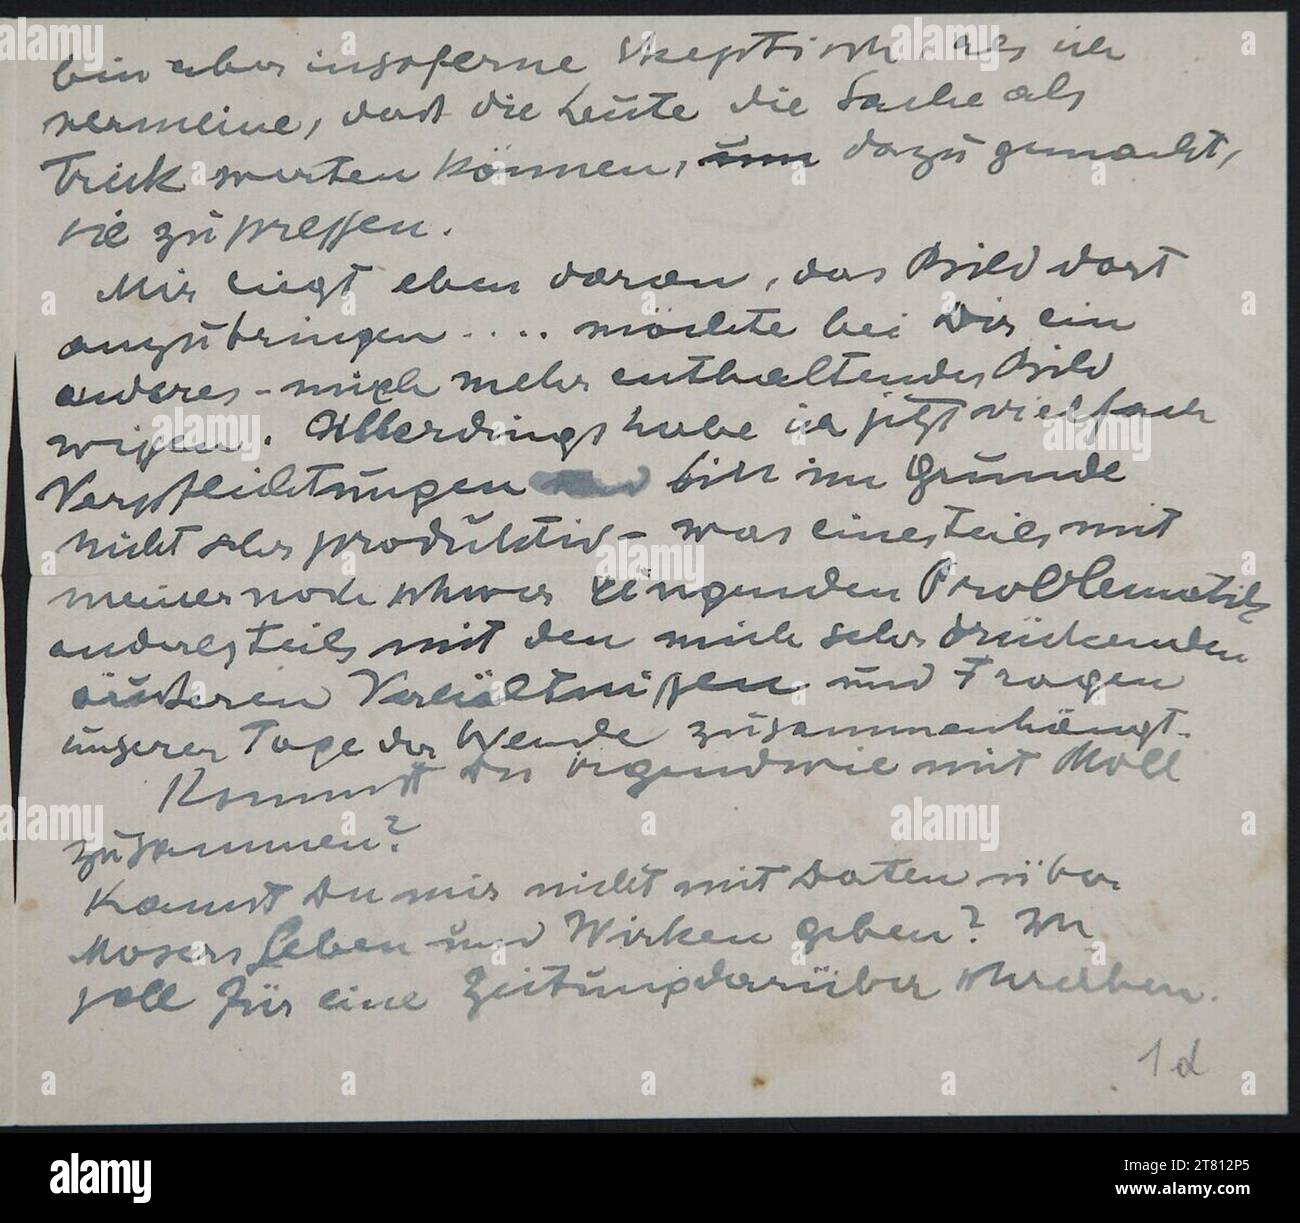 bin aber insoferne skeptisch, als ich
vermeine, dass die Leute die Sache als
Trick werten können, dazu gemacht,
sie zu pressen.
Mir liegt eben daran, das Bild dort
anzubringen .... möchte bei Dir ein
anderes - mich mehr enthaltendes Bild
wissen. Allerdings habe ich jetzt vielfach
Verpflichtungen bin im Grunde
nicht sehr produktiv - was einesteils mit
meiner noch schwer ringenden Problematik
andersteils mit den mich sehr drückenden
äusseren Verhältnissen und Fragen
unserer Tage der Wende zusammenhängt.
Kommst Du irgendwie mit Moll
zusammen?
Kannst Du mir nicht mit Daten über
Mosers Leben und Wirken geben?
soll für eine Zeitung darüber schreiben.
1d
alamy
Image ID: 2T812P5
www.alamy.com